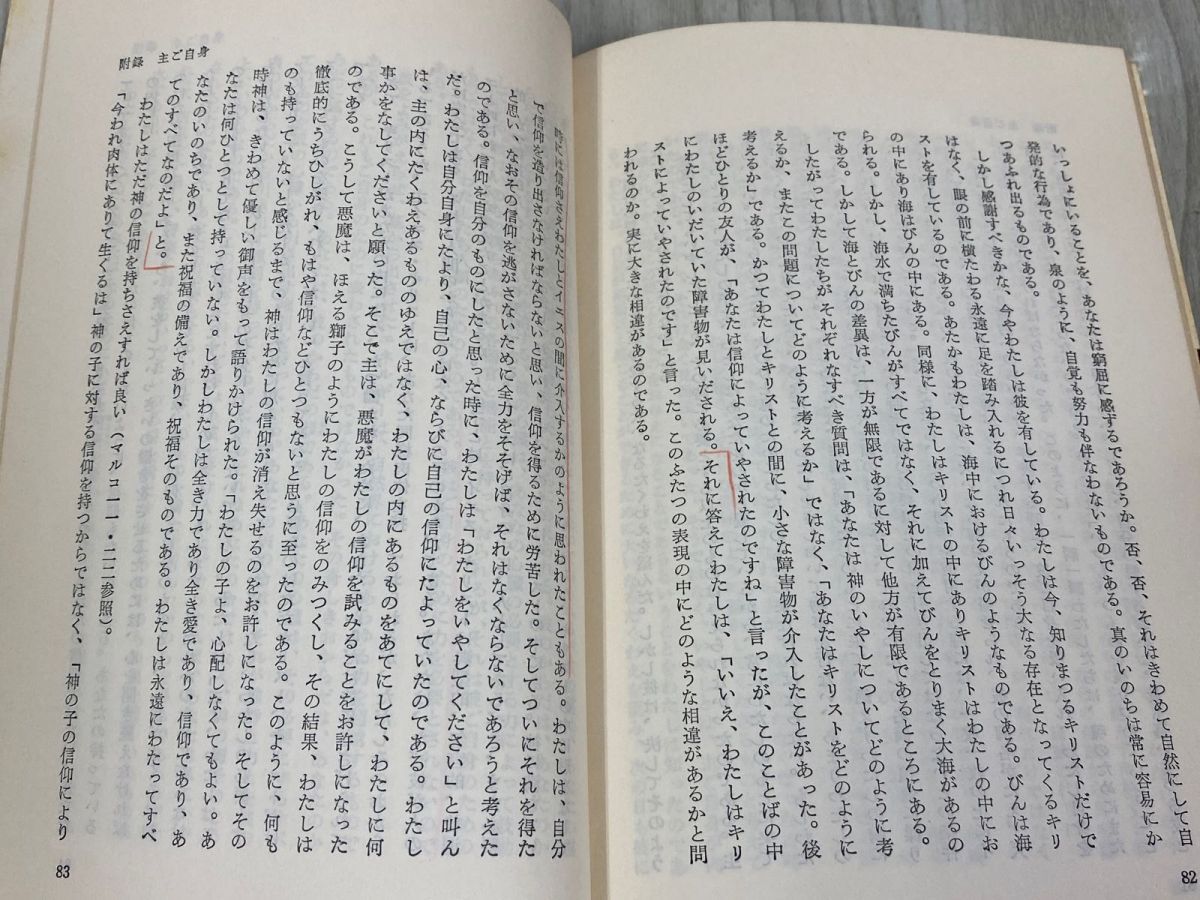 いっしょにいることを、あなたは窮屈に感ずるであろうか。否、否、それはきわめて自然にして自
発的な行為であり、泉のように、自覚も努力も伴わないものである。真のいのちは常に容易にか
つあふれ出るものである。
しかし感謝すべきかな、今やわたしは彼を有している。わたしは今、知りまつるキリストだけで
はなく、眼の前に横たわる永遠に足を踏み入れるにつれ日々いっそう大なる存在となってくるキリ
ストを有しているのである。あたかもわたしは、海中におけるびんのようなものである。びんは海
の中にあり海はびんの中にある。同様に、わたしはキリストの中にありキリストはわたしの中にお
られる。しかし、海水で満ちたびんがすべてではなく、それに加えてびんをとりまく大海があるの
である。しかして海とびんの差異は、一方が無限であるに対して他方が有限であるところにある。
したがってわたしたちが、それぞれなすべき質問は、「あなたは神のいやしについてどのように考
えるか、またこの問題についてどのように考えるか」ではなく、「あなたはキリストをどのように
考えるか」である。かつてわたしとキリストとの間に、小さな障害物が介入したことがあった。後
ほどひとりの友人が、「あなたは信仰によっていやされたのですね」と言ったが、このことばの中
にわたしのいだいていた障害物が見いだされる。それに答えてわたしは、「いいえ、わたしはキリ
ストによっていやされたのです」と言った。このふたつの表現の中にどのような相違があるかと問
われるのか。実に大きな相違があるのである。
82
時には信仰さえわたしとイエスの間に介入するかのように思われたこともある。わたしは、自分
で信仰を造り出さなければならないと思い、信仰を得るために労苦した。そしてついにそれを得た
と思い、なおその信仰を逃がさないために全力をそそげば、それはなくならないであろうと考えた
のである。信仰を自分のものにしたと思った時に、わたしは「わたしをいやしてください」と叫ん
だ。わたしは自分自身にたより、自己の心、ならびに自己の信仰にたよっていたのである。わたし
は、主の内にたくわえあるもののゆえではなく、わたしの内にあるものをあてにして、わたしに何
事かをなしてくださいと願った。そこで主は、悪魔がわたしの信仰を試みることをお許しになった
のである。こうして悪魔は、ほえる獅子のようにわたしの信仰をのみつくし、その結果、わたしは
徹底的にうちひしがれ、もはや信仰などひとつもないと思うに至ったのである。このように、何も
のも持っていないと感じるまで、神はわたしの信仰が消え失せるのをお許しになった。そしてその
時神は、きわめて優しい御声をもって語りかけられた。「わたしの子よ、心配しなくてもよい。あ
なたは何ひとつとして持っていない。しかしわたしは全き力であり全き愛であり、信仰であり、あ
なたのいのちであり、また祝福の備えであり、祝福そのものである。わたしは永遠にわたってすべ
てのすべてなのだよ」と。
わたしはただ神の信仰を持ちさえすれば良い（マルコ一一・二二参照）。
「今われ肉体にありて生くるは」神の子に対する信仰を持つからではなく、「神の子の信仰により
附録　主ご自身
83